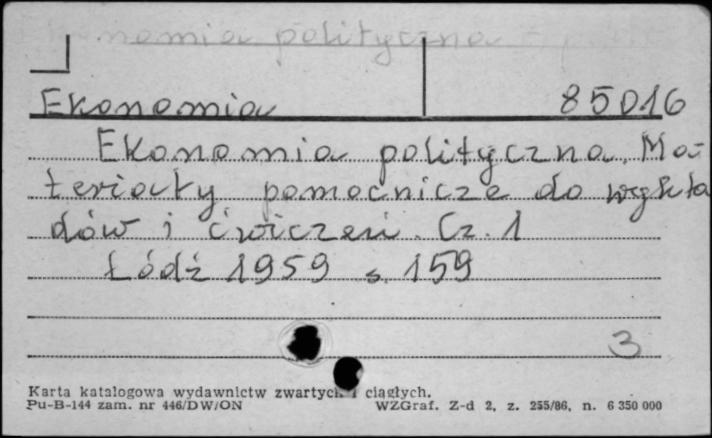 nomia polityczna
Ekonomia 85016
Ekonomia polityczna. Ma-
teriały pomocnicze do wykła
dów i ćwiczeń. Cz. 1
Łódź 1959 s. 159
3
Karta katalogowa wydawnictw zwartych i ciągłych.
Pu-B-144 zam. nr 446/DW/ON WZGraf. Z-d 2, z. 255/86, n. 6 350 000